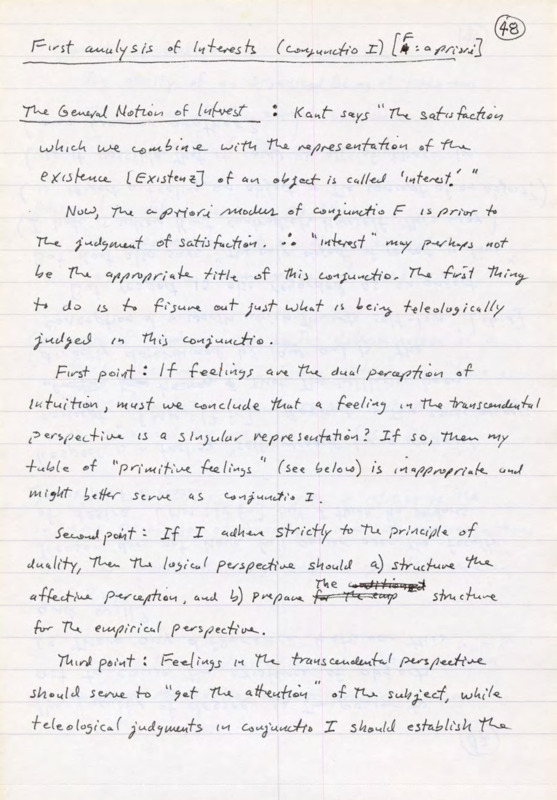 48
First analysis of Interests (conjunctio I) [F: a priori]
The General Notion of Interest : Kant says "The satisfaction
which we combine with the representation of the
existence [Existenz] of an object is called 'interest'."
Now, the a priori modus of conjunctio F is prior to
the judgment of satisfaction. ∴ "interest" may perhaps not
be the appropriate title of this conjunctio. The first thing
to do is to figure out just what is being teleologically
judged in this conjunctio.
First point : If feelings are the dual perception of
intuition, must we conclude that a feeling in the transcendental
perspective is a singular representation? If so, then my
table of "primitive feelings" (see below) is inappropriate and
might better serve as conjunctio I.
Second point : If I adhere strictly to the principle of
duality, then the logical perspective should a) structure the
affective perception, and b) prepare the structure
for the empirical perspective.
Third point : Feelings in the transcendental perspective
should serve to "get the attention" of the subject, while
teleological judgments in conjunctio I should establish the